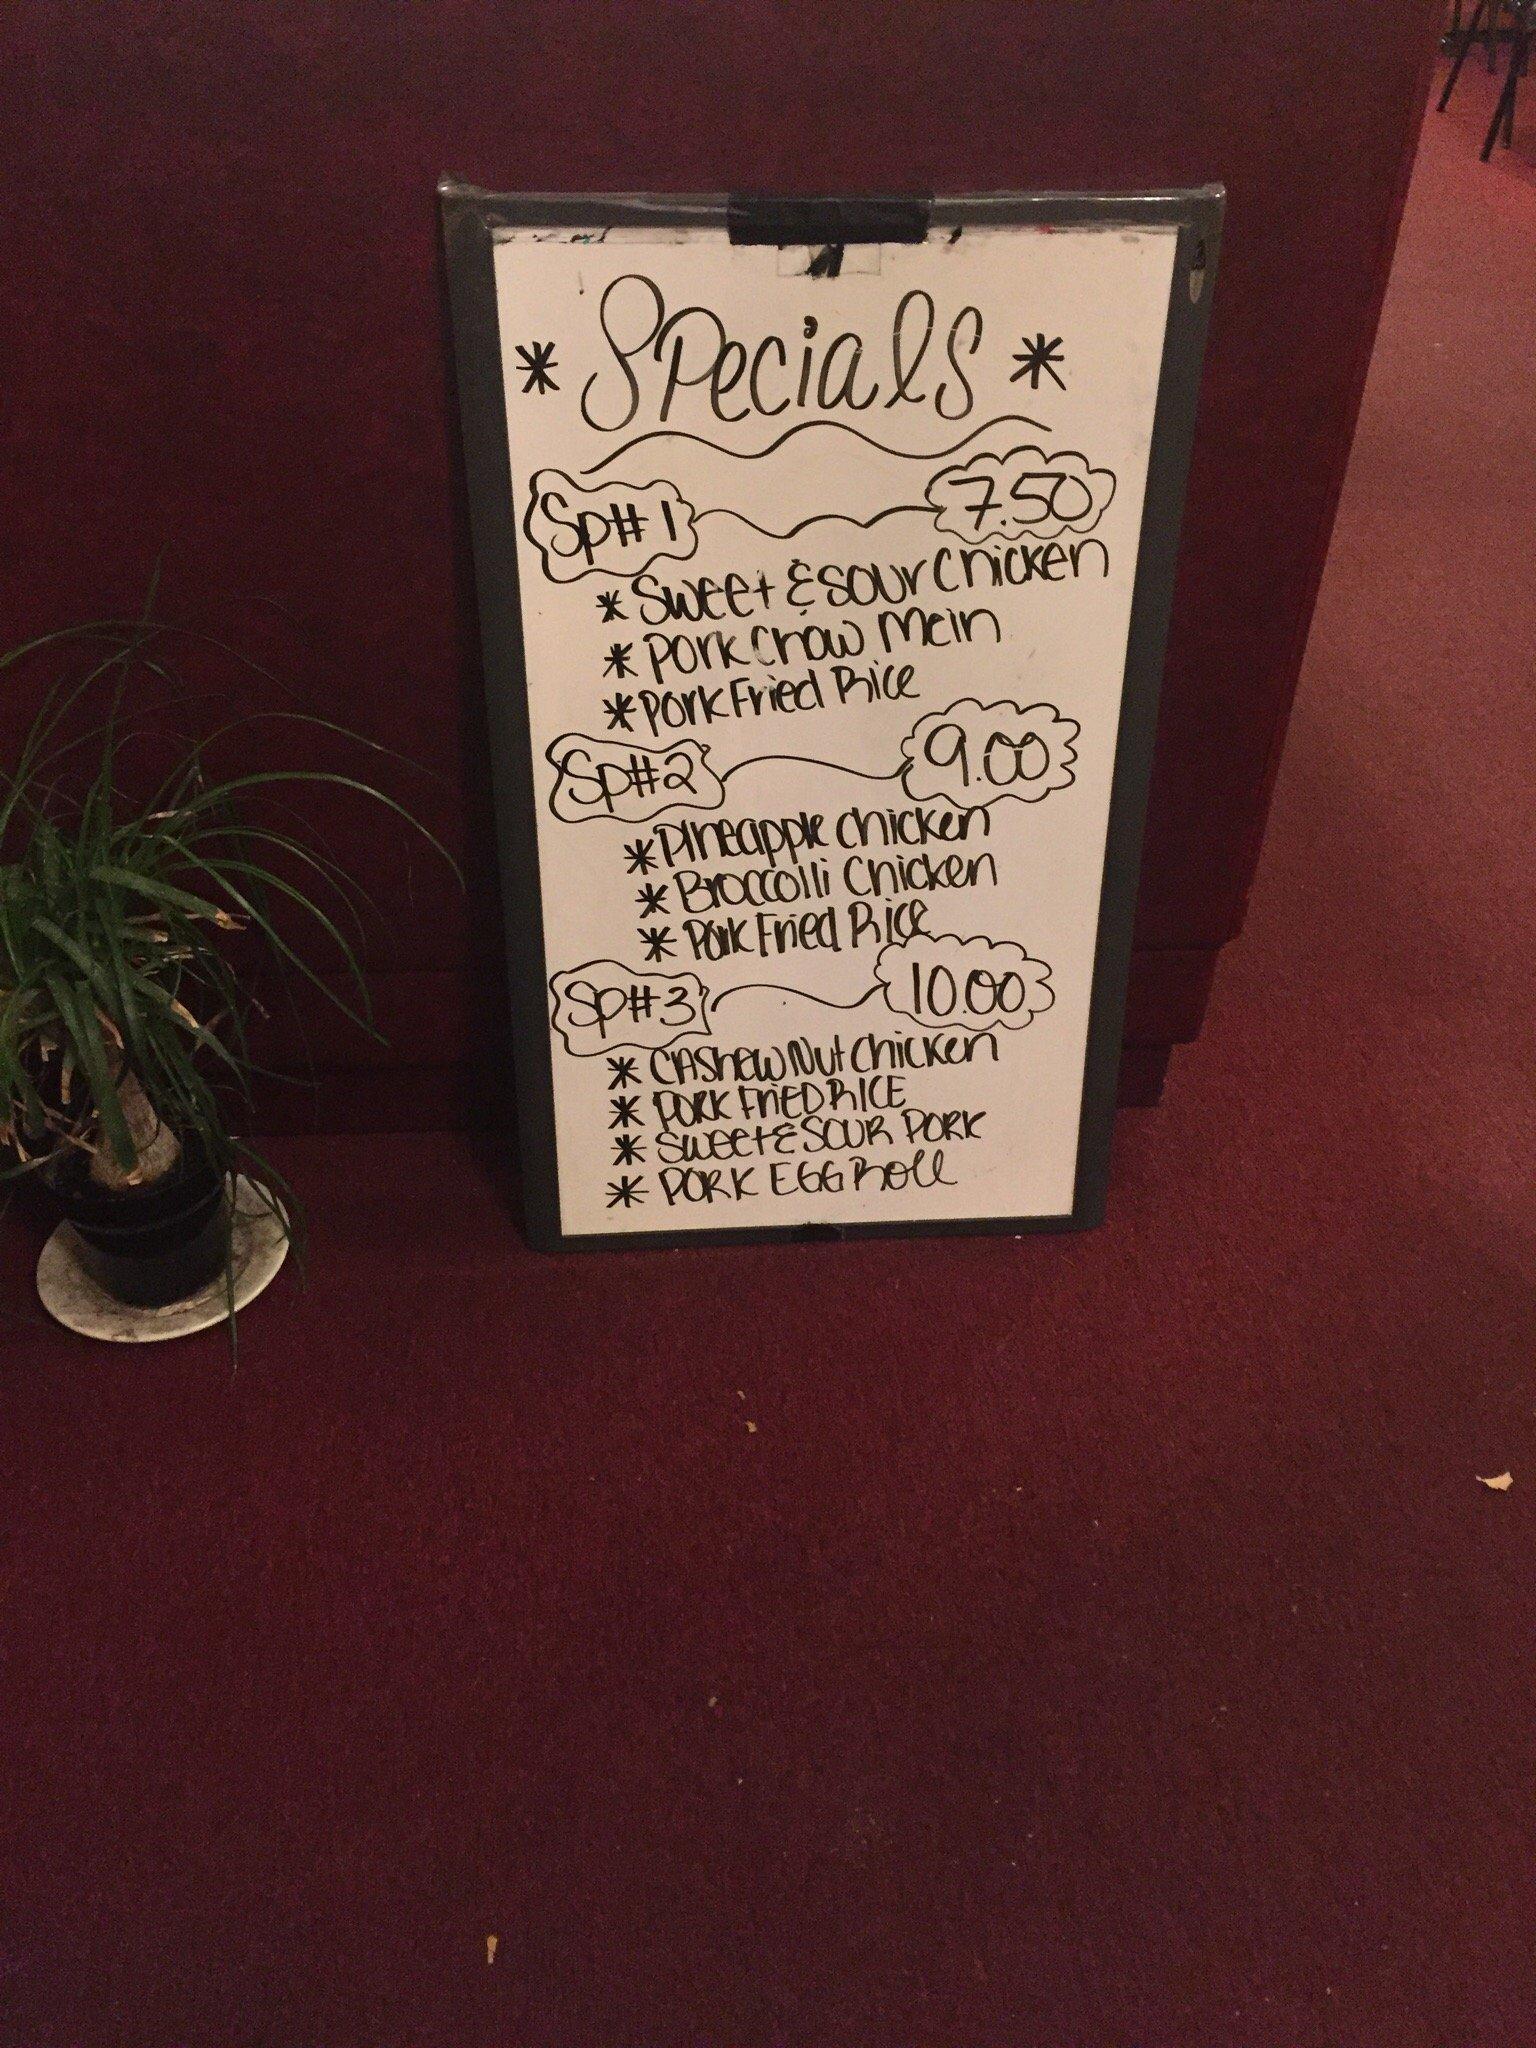 * Specials *
Sp#1 7.50
* Sweet & Sour Chicken
* Pork Chow Mein
* Pork Fried Rice
Sp#2 9.00
* Pineapple Chicken
* Broccolli Chicken
* Pork Fried Rice
Sp#3 10.00
* CAShew Nut Chicken
* PORK FriED RICE
* Sweet & SOUR PORK
* PORK EGG Roll